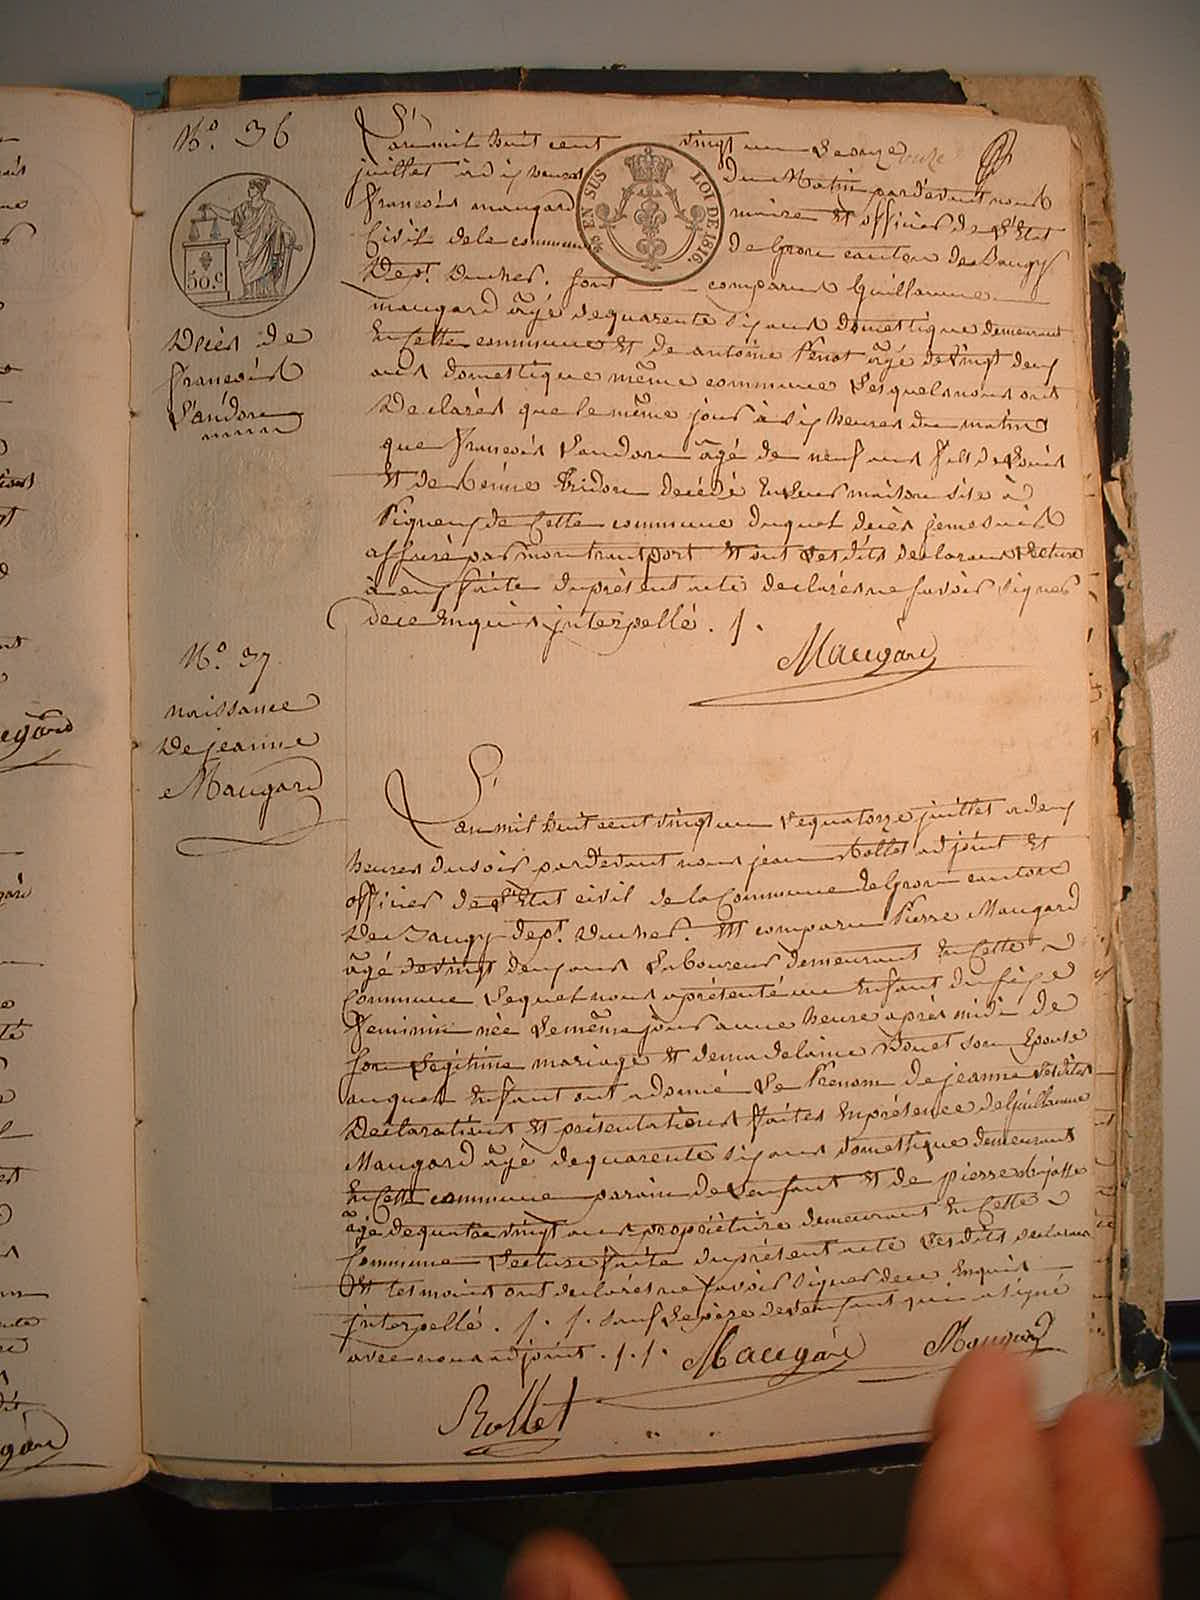 N.º 36
50.c
Décès de
François
Landon
L'an mil huit cent vingt un Le onze
juillet à dix heures du Matin pardevant nous
françois maugard maire Et officier de L'Etat
Civil de la commune de Gron canton de Baugy
Dépt. Ducher. Sont comparus Guillaume
maugard âgé de quarente six ans domestique demeurant
En Cette commune Et de antoine Penot âgé de vingt deux
ans domestique même commune Lesquels nous ont
Déclarés que le même jour à six heures du matin
que François Landon âgé de neuf ans fils de Louis
Et de Reine Bridon décédé En Leur maison sise à
de Cette commune duquel décès je me suis
assuré par mon transport Et ont Lesdits déclarans Lecture
à eux faite du présent acte déclarés ne savoir signer
de ce Enquis jnterpellé . /.
Maugard
EN SUS LOI DE 1816
N.º 37
naissance
De jeanne
Maugard
L'an mil huit cent vingt un Le quatorze juillet a deux
heures du soir pardevant nous jean Rollet adjoint Et
officier de L'Etat civil de la Commune de Gron canton
De Baugy dept. Ducher. Est comparu Pierre Maugard
âgé de vingt deux ans Laboureur demeurant En Cette
Commune Lequel nous a présenté un Enfant du sexe
Feminin née Le même jour a une heure après midi de
son Légitime mariage Et de madelaine son Epouse
auquel Enfant ont a donné Le Prénom de jeanne Lesdites
Déclarations Et présentations faites En présence de Guillaume
Maugard âgé de quarente six ans domestique demeurant
En Cette commune parain de L'enfant Et de pierre
âgé de quatre vingt ans propriétaire demeurant En Cette
Commune Lecture faite du présent acte Lesdits déclarans
Et temoins ont déclarés ne savoir signer de ce Enquis
jnterpellé . /. /. sauf Le père de L'enfant qui a signé
avec nous adjoint . /. /. Maugard Maugard
Rollet